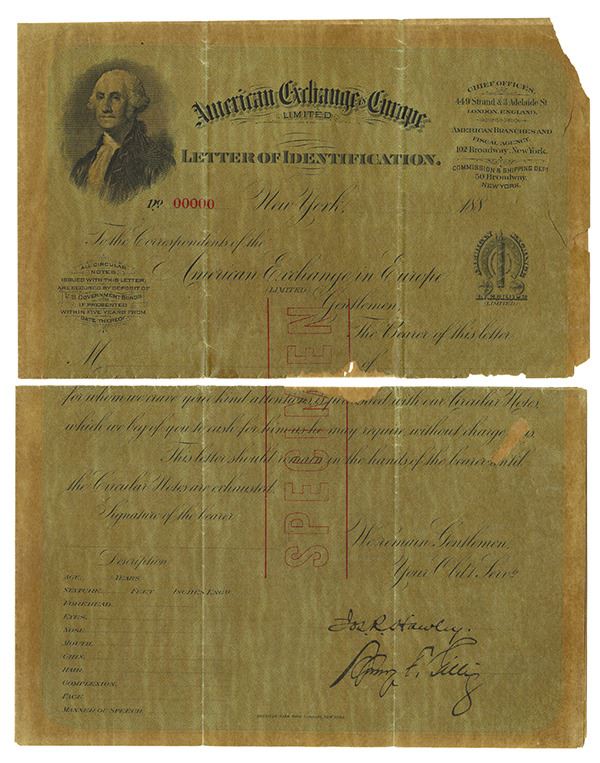 American Exchange in Europe
LIMITED
LETTER OF IDENTIFICATION.
CHIEF OFFICES.
449 Strand & 3 Adelaide St
LONDON, ENGLAND.
AMERICAN BRANCHES AND
FISCAL AGENCY,
102 Broadway, New York.
COMMISSION & SHIPPING DEPT
50 Broadway,
NEW YORK.
No 00000
New York, 188
To the Correspondents of the
American Exchange in Europe
(LIMITED)
ALL CIRCULAR
NOTES
ISSUED WITH THIS LETTER,
ARE SECURED BY DEPOSIT OF
U.S. GOVERNMENT BONDS
IF PRESENTED
WITHIN FIVE YEARS FROM
DATE THEREOF.
AMERICAN EXCHANGE
IN EUROPE
(LIMITED)
Gentlemen,
The Bearer of this letter
M of
for whom we crave your kind attention is provided with our Circular Notes,
which we beg of you to cash for him as he may require without charge
This letter should remain in the hands of the bearer until
the Circular Notes are exhausted.
Signature of the bearer
We remain Gentlemen,
Your Obdt. Servts
SPECIMEN
Description
AGE, YEARS
STATURE, FEET INCHES ENGH
FOREHEAD,
EYES,
NOSE,
MOUTH,
CHIN,
HAIR,
COMPLEXION,
FACE,
MANNER OF SPEECH,
Jos. R. Hawley.
Henry F. Gillig
AMERICAN BANK NOTE COMPANY, NEW YORK.